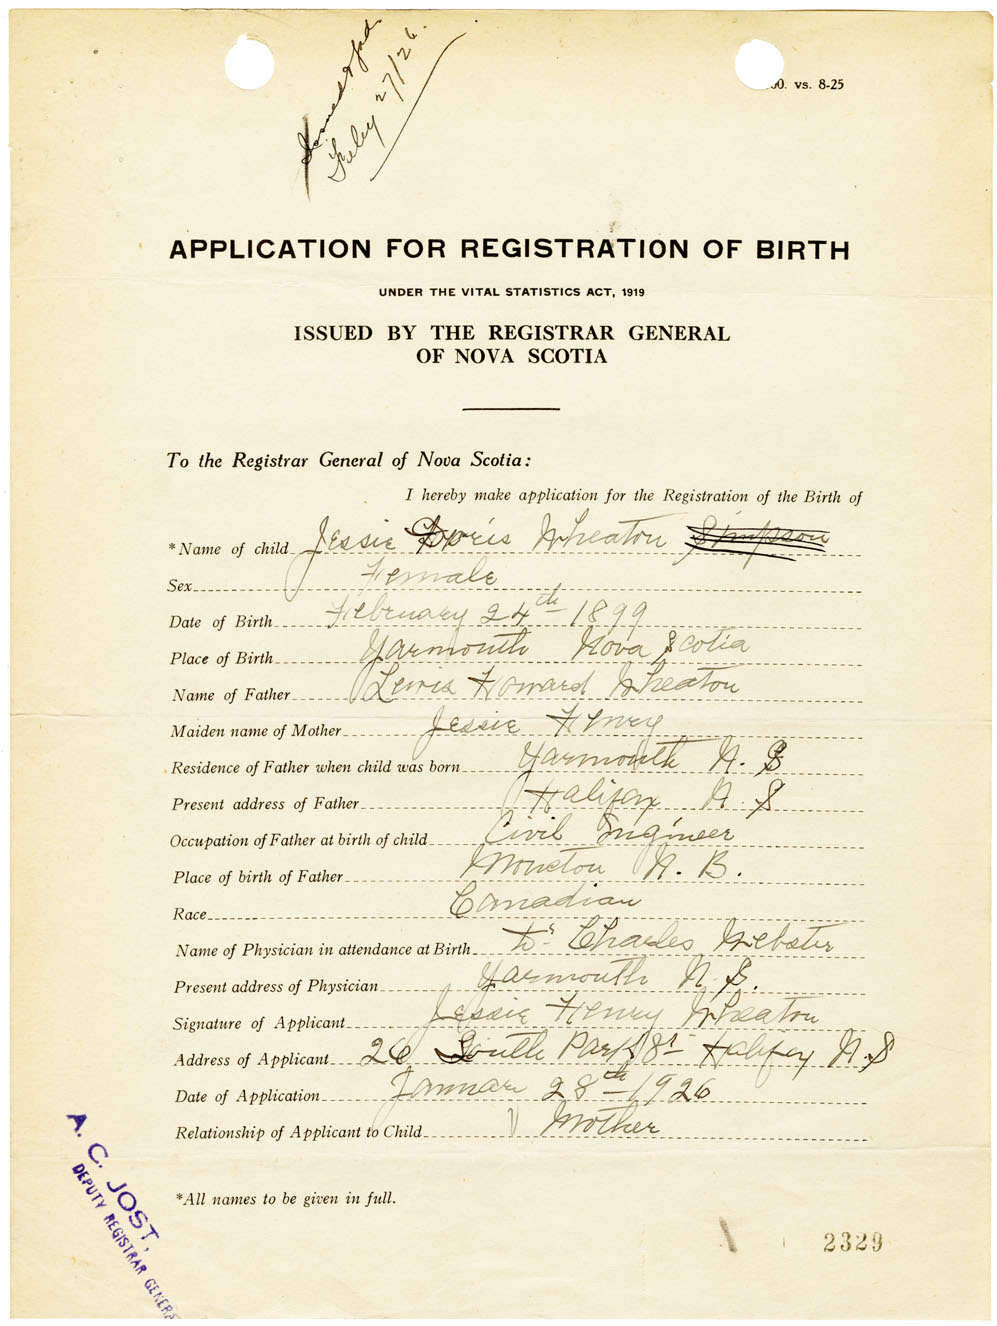 Issued & pd.
Feby 27/26.
00. vs. 8-25
APPLICATION FOR REGISTRATION OF BIRTH
UNDER THE VITAL STATISTICS ACT, 1919
ISSUED BY THE REGISTRAR GENERAL
OF NOVA SCOTIA
To the Registrar General of Nova Scotia:
I hereby make application for the Registration of the Birth of
*Name of child Jessie Doris Wheaton Simpson
Sex Female
Date of Birth February 24th 1899
Place of Birth Yarmouth Nova Scotia
Name of Father Lewis Howard Wheaton
Maiden name of Mother Jessie Henry
Residence of Father when child was born Yarmouth N. S
Present address of Father Halifax N. S
Occupation of Father at birth of child Civil Engineer
Place of birth of Father Moncton N. B.
Race Canadian
Name of Physician in attendance at Birth Dr Charles Webster
Present address of Physician Yarmouth N. S.
Signature of Applicant Jessie Henry Wheaton
Address of Applicant 26 South Park St Halifax N. S
Date of Application Januar 28th 1926
Relationship of Applicant to Child Mother
*All names to be given in full.
A. C. JOST,
DEPUTY REGISTRAR GENERA
2329